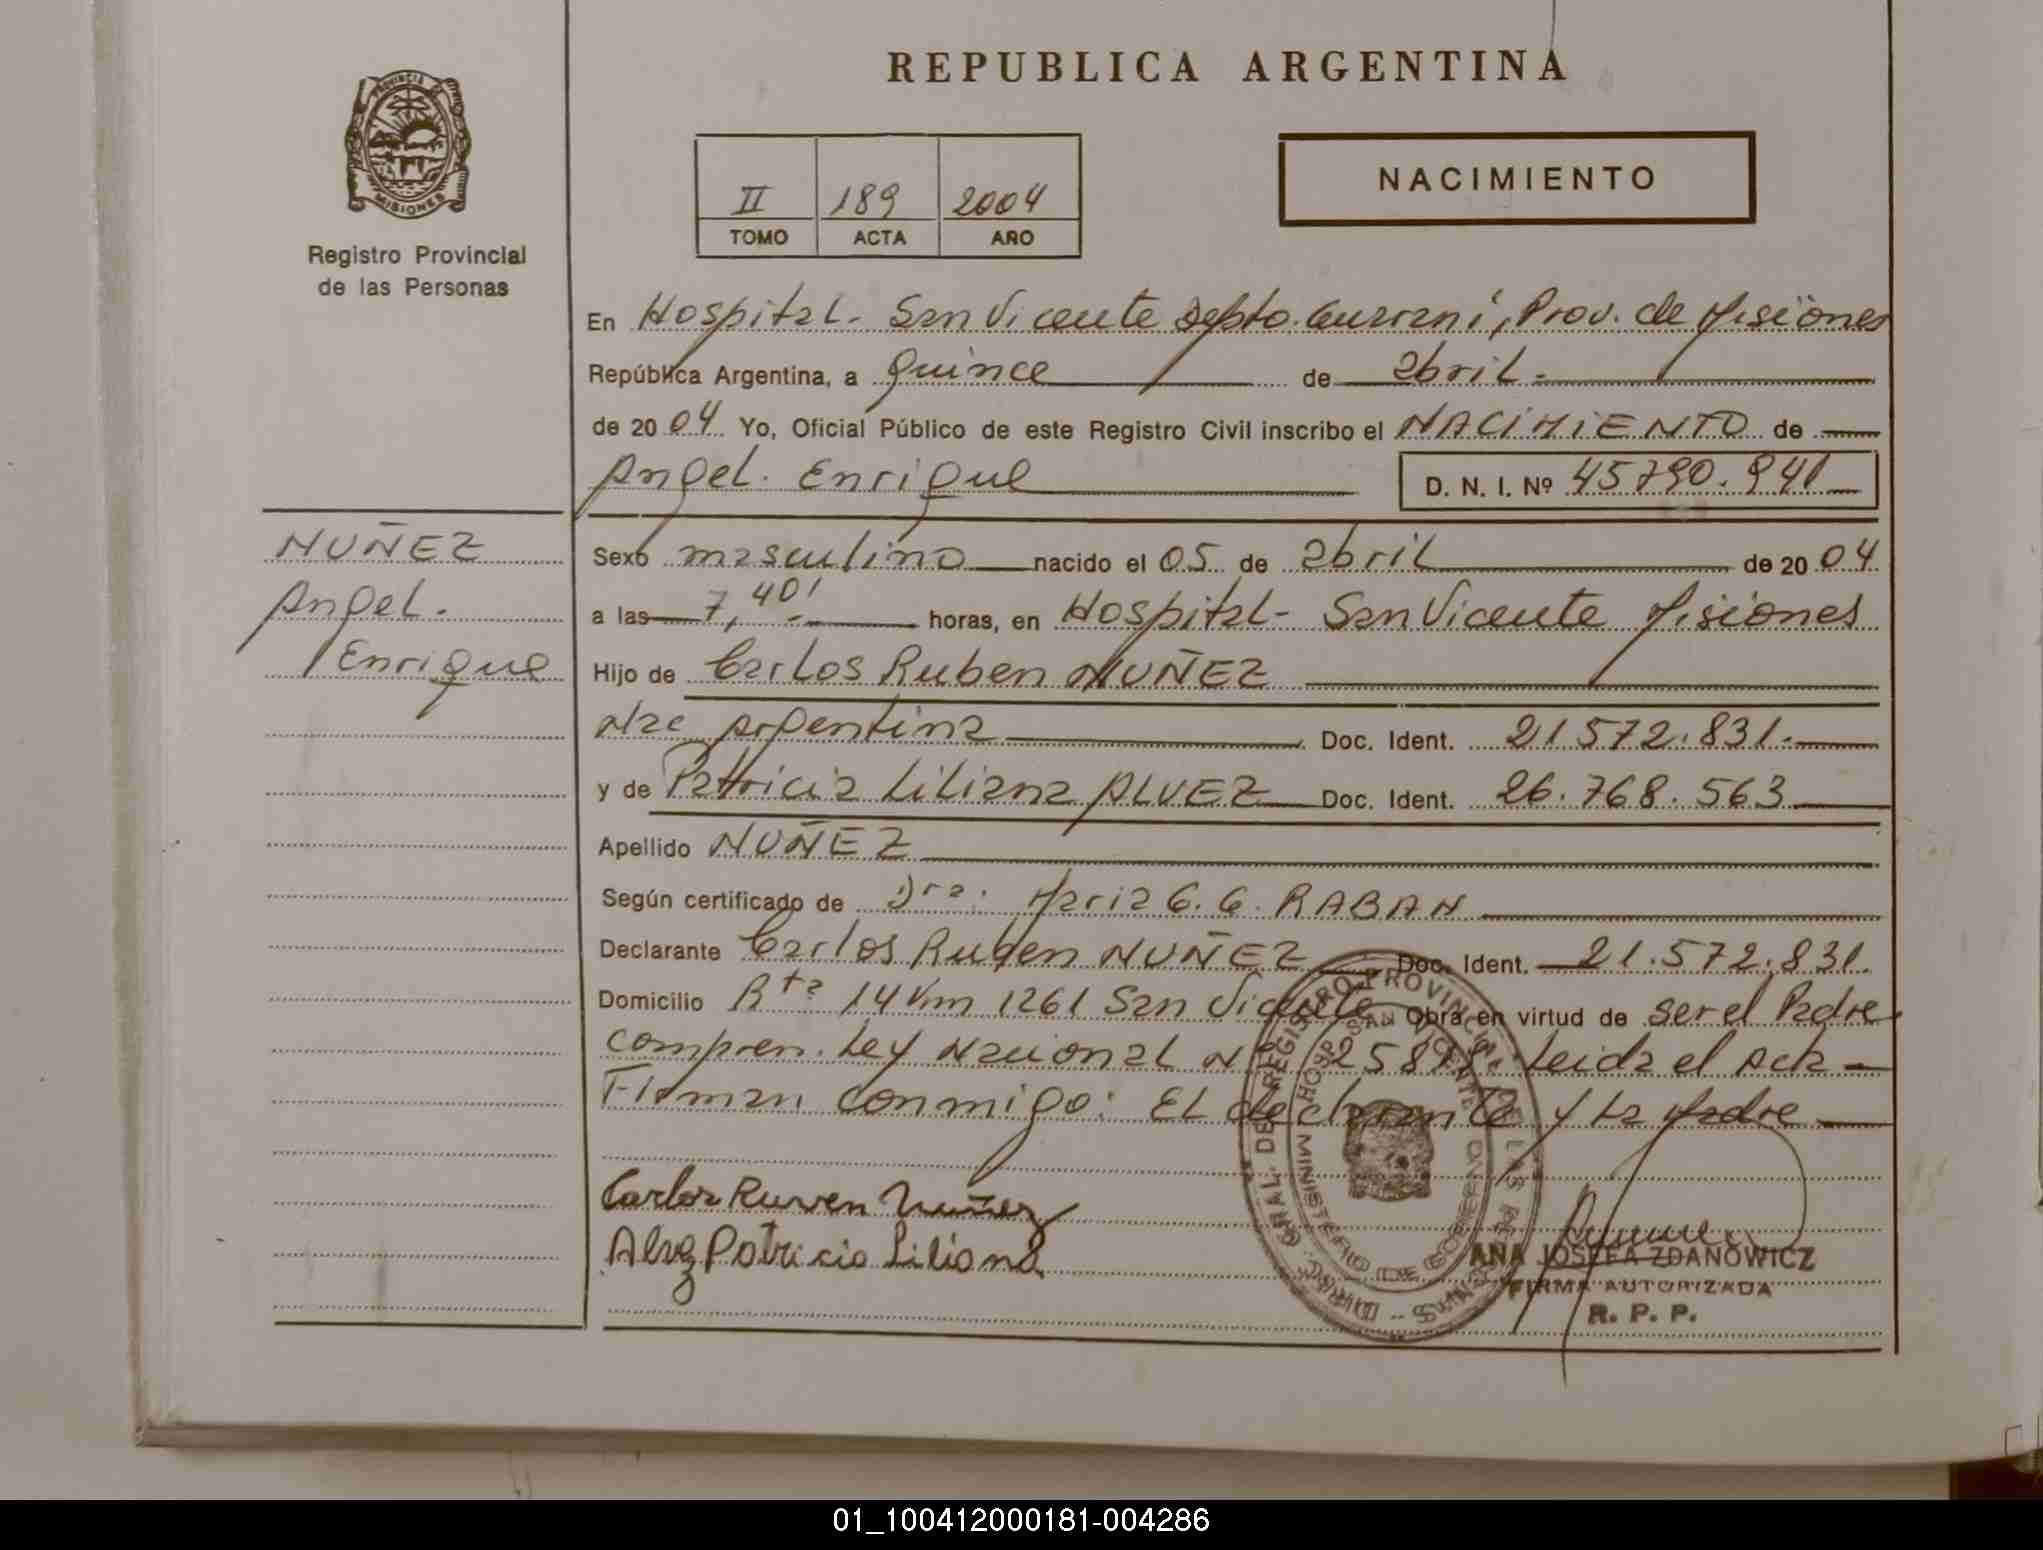 REPUBLICA ARGENTINA
PROVINCIA DE MISIONES
Registro Provincial
de las Personas
NACIMIENTO
II 189 2004
TOMO ACTA AÑO
En Hospital - San Vicente Depto. Guarani, Prov. de Misiones
República Argentina, a quince de abril.
de 2004 Yo, Oficial Público de este Registro Civil inscribo el NACIMIENTO de
Angel. Enrique D. N. I. Nº 45790.941
NUÑEZ
Angel.
Enrique
Sexo masculino nacido el 05 de abril de 2004
a las 7,40' horas, en Hospital - San Vicente Misiones
Hijo de Carlos Ruben NUÑEZ
Nac Argentina Doc. Ident. 21572.831.
y de Patricia Liliana ALVEZ Doc. Ident. 26.768.563
Apellido NUÑEZ
Según certificado de Dra. Maria G. G. RABAN
Declarante Carlos Ruben NUÑEZ Doc. Ident. 21.572.831.
Domicilio Rta 14 Km 1261 San Vicente Obra en virtud de ser el Padre
compren. Ley Nacional Nº Leida el Acta
Firman conmigo: El declarante y la Madre
Carlos Ruven Nuñez
Alvez Patricia Liliana
DIREC. GRAL. DEL REGISTRO PROVINCIAL DE LAS PERSONAS
HOSP. SAN VICENTE
MINISTERIO DE GOBIERNO
ANA JOSEFA ZDANOWICZ
FIRMA AUTORIZADA
R. P. P.
01_100412000181-004286